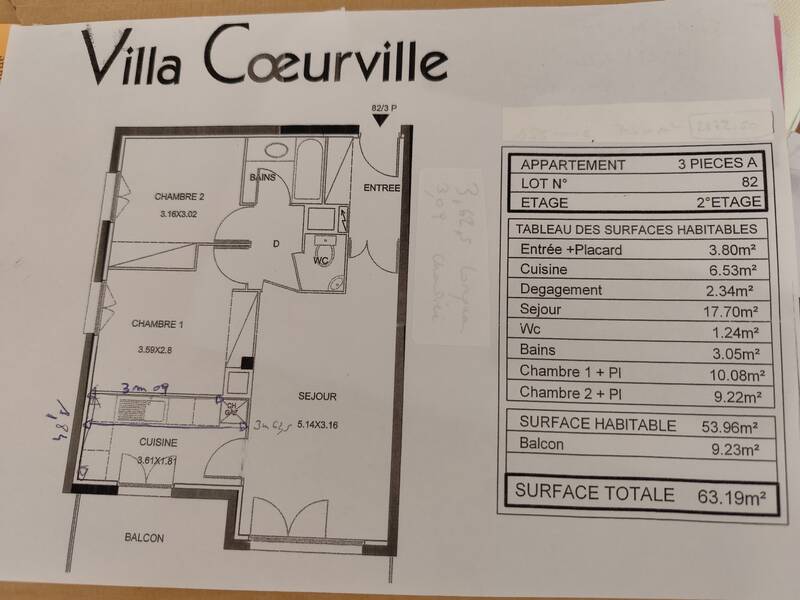 Villa Cœurville
82/3 P
BAINS
ENTREE
CHAMBRE 2
3.16X3.02
D
WC
CHAMBRE 1
3.59X2.8
3m 09
CH
GAZ
SEJOUR
5.14X3.16
CUISINE
3.61X1.81
3m 62,5
1,84
BALCON
3,62,5
3,09
APPARTEMENT 3 PIECES A
LOT N° 82
ETAGE 2°ETAGE
TABLEAU DES SURFACES HABITABLES
Entrée +Placard 3.80m²
Cuisine 6.53m²
Degagement 2.34m²
Sejour 17.70m²
Wc 1.24m²
Bains 3.05m²
Chambre 1 + Pl 10.08m²
Chambre 2 + Pl 9.22m²
SURFACE HABITABLE 53.96m²
Balcon 9.23m²
SURFACE TOTALE 63.19m²